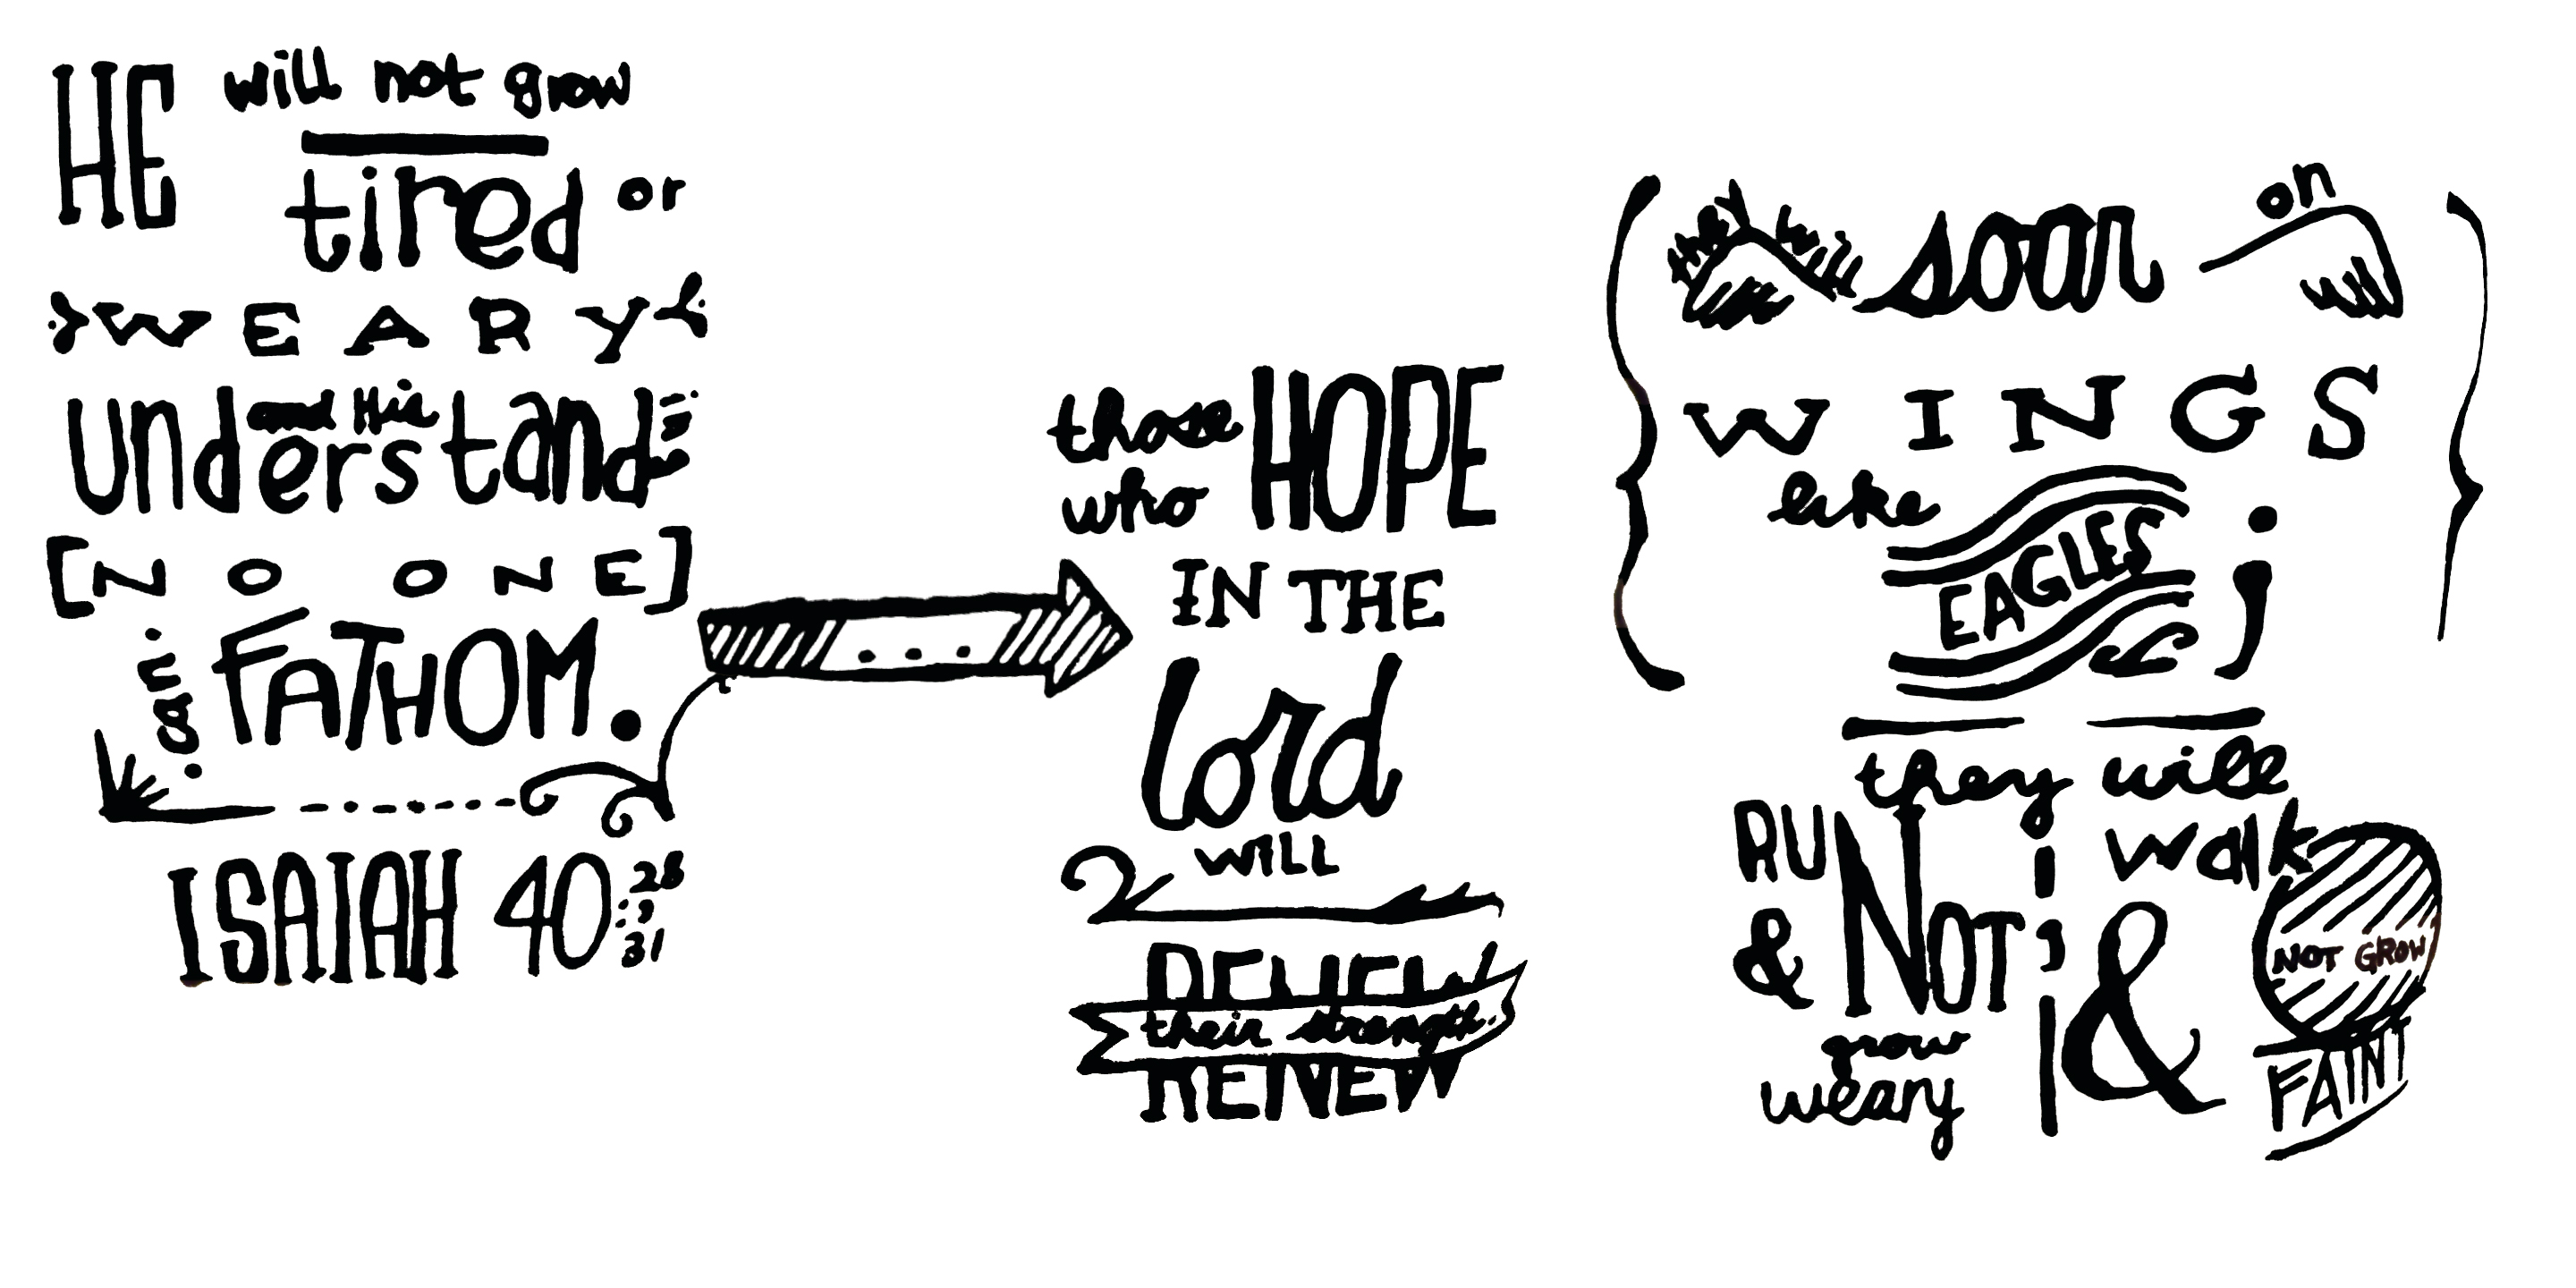 HE will not grow
tired or
WEARY
and His
understanding
[NO ONE]
can FATHOM.
ISAIAH 40:28-31
...
those
who HOPE
IN THE
lord
WILL
RENEW
their strength.
they will soar on
WINGS
like
EAGLES;
they will
RUN walk
& NOT & NOT GROW
grow FAINT
weary